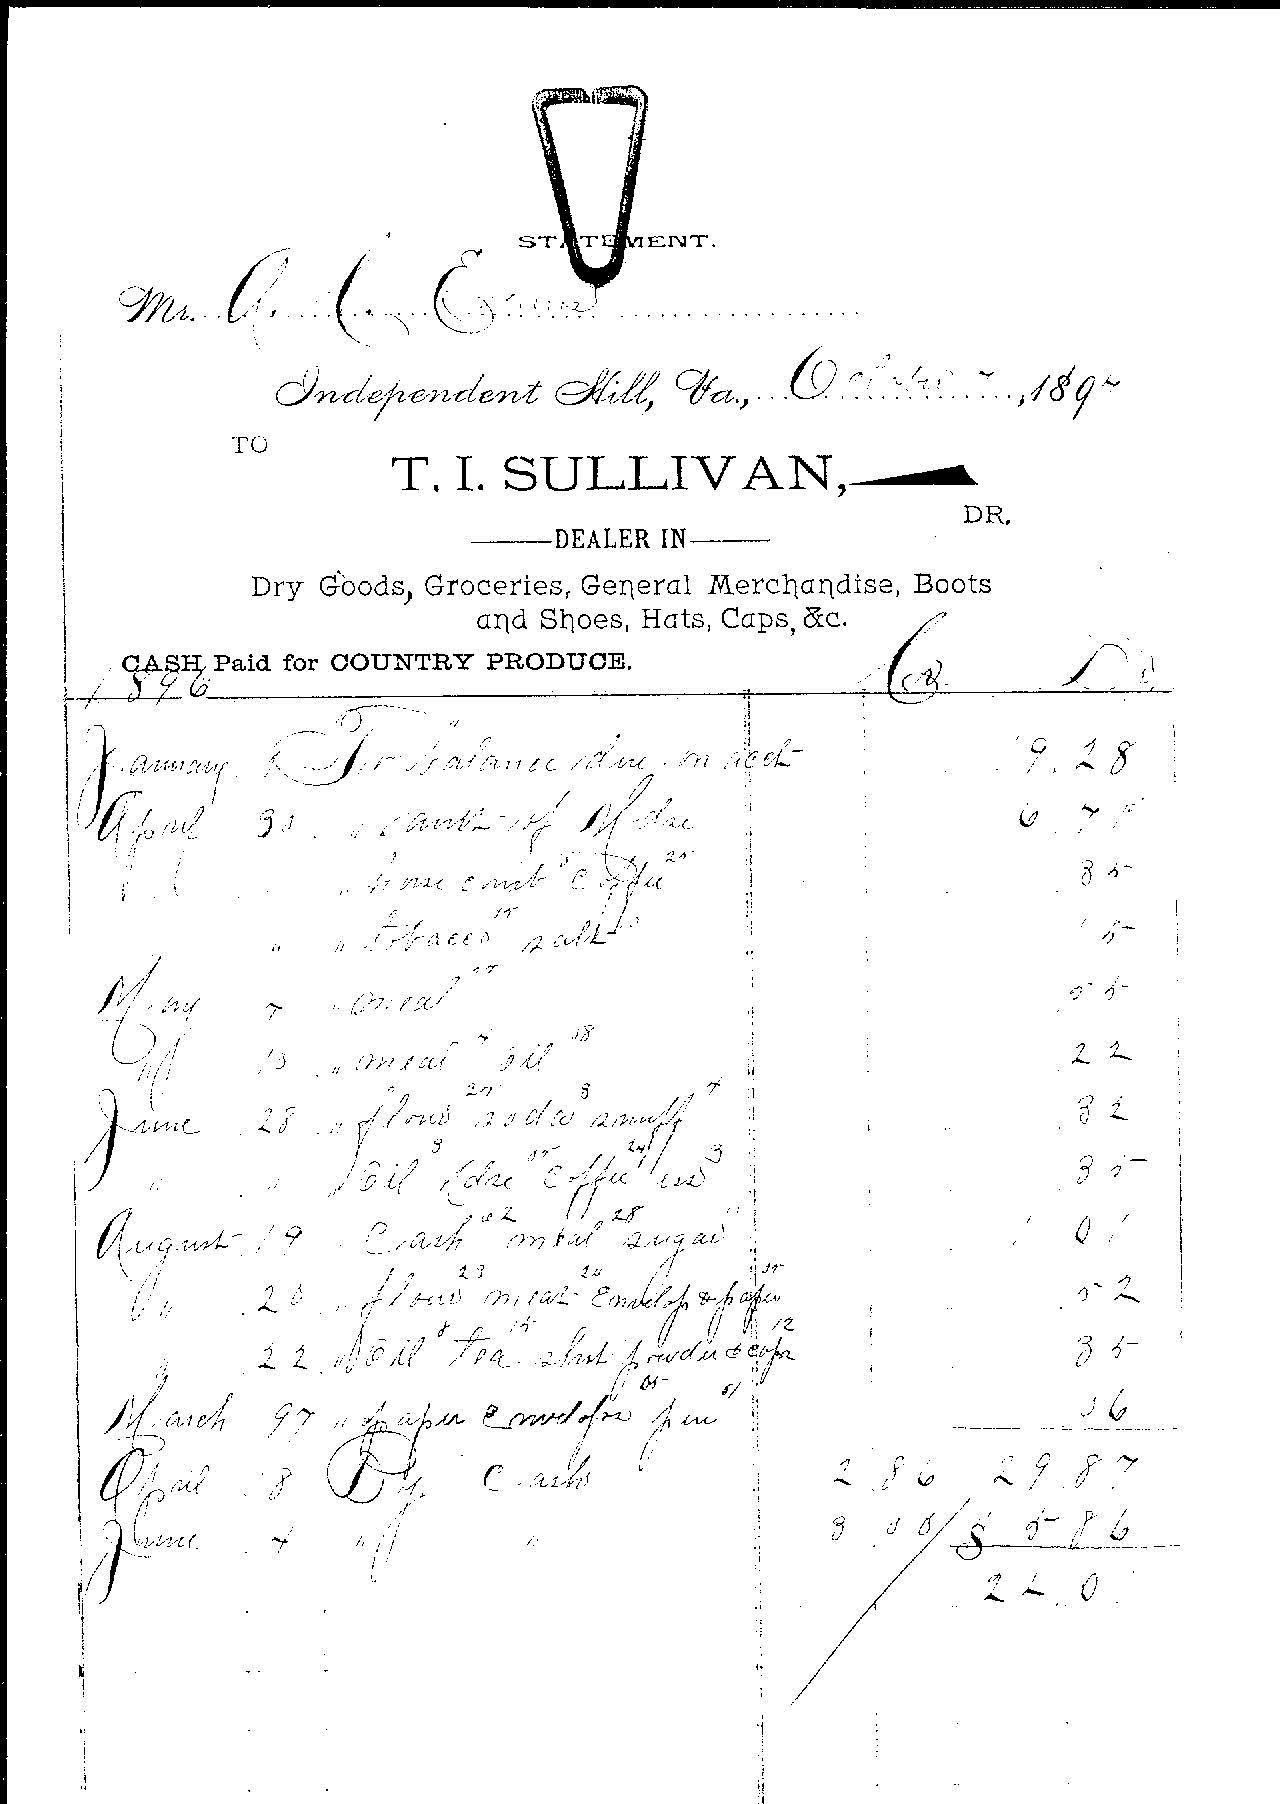 STATEMENT.
Mr. R. C.
Independent Hill, Va., October 7, 1897
TO
T. I. SULLIVAN,
DR.
DEALER IN
Dry Goods, Groceries, General Merchandise, Boots
and Shoes, Hats, Caps, &c.
CASH Paid for COUNTRY PRODUCE.
1896 Cr.
January To balance due on acct 19.28
April 30 " amt of Mdse 6 7
" " horse comb Coffee 25 35
" " tobacco 15 salt 10
May 7 " meal 55 55
" 13 " meat 4 oil 18 22
June 28 " flour 25 soda 3 snuff 4 32
" " " Oil 8 Coffee 3 35
August 19 Cash 62 meal 28 sugar 11 1 01
" 20 " flour 23 meat 24 Envelop & paper 05 52
22 " Oil 8 tea 15 shot powder & caps 12 35
March 97 " paper Envelops 05 pen 01 06
April 18 By Cash 2 86 29.87
June 4 " " 3 00 5 86
24 0